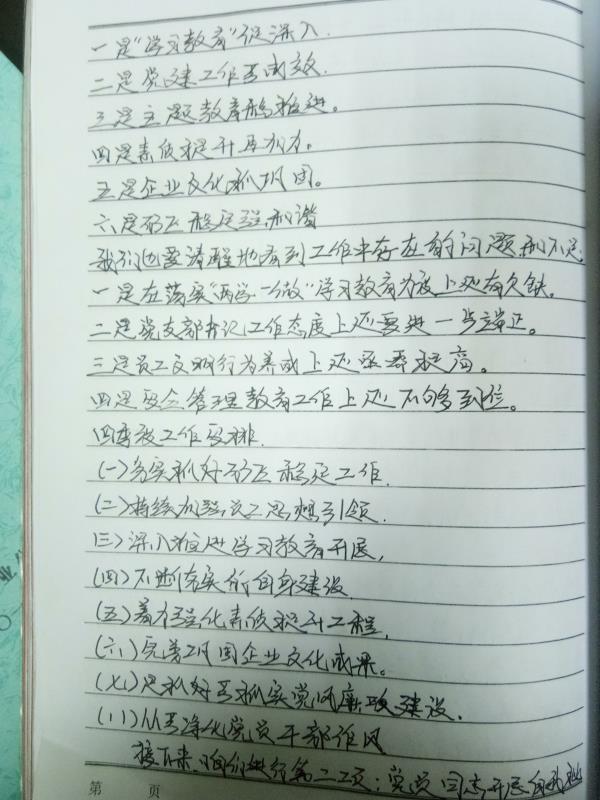 一是“学习教育”促深入.
二是党建工作显成效.
三是主题教育稳推进。
四是素质提升再加力.
五是企业文化抓巩固。
六是矿区稳定强和谐
我们也要清醒地看到工作中存在的问题和不足,
一是在落实“两学一做”学习教育力度上还有欠缺.
二是党支部书记工作态度上还要进一步端正。
三是员工文明行为养成上还需要提高。
四是安全管理教育工作上还不够到位。
四季度工作安排.
(一)务实抓好矿区稳定工作.
(二)持续加强员工思想引领.
(三)深入推进学习教育开展,
(四)不断落实行自身建设.
(五)着力强化素质提升工程,
(六)完善巩固企业文化成果。
(七)是抓好抓实党风廉政建设.
(八)从严净化党员干部作风
接下来,咱们进行第二项:党员同志开展自我批
第 页